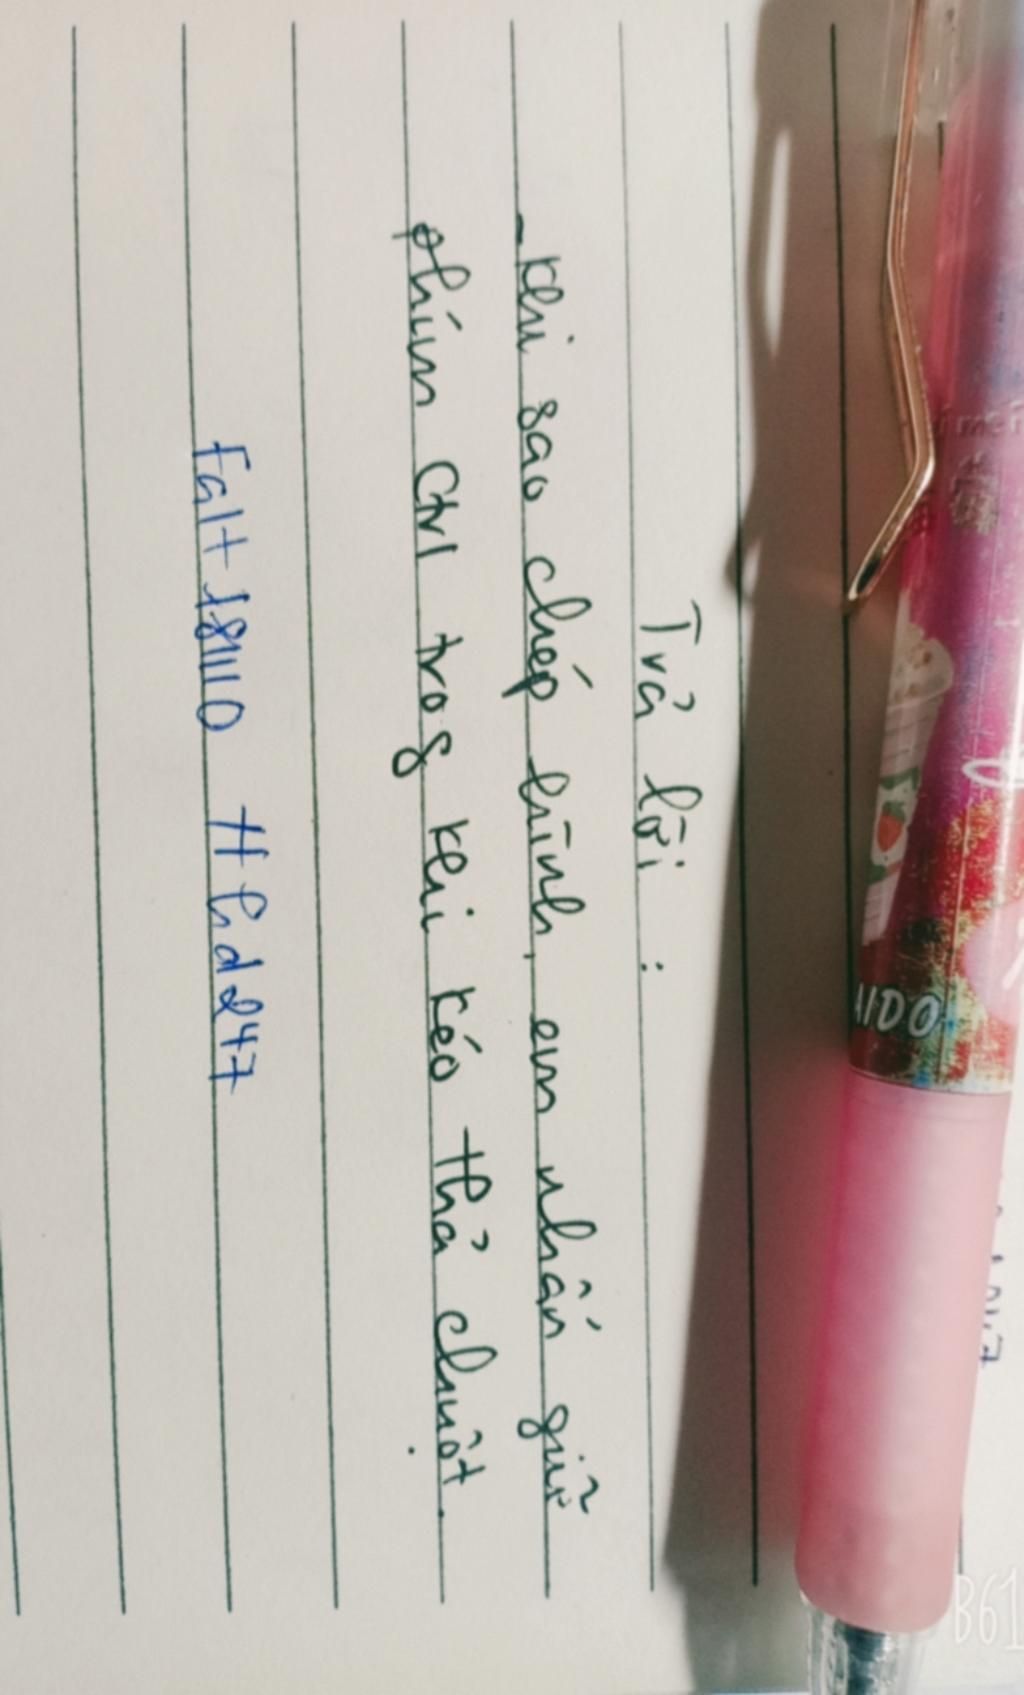 Trả lời :
- khi sao chép hình, em nhấn giữ
phím Ctrl trog khi kéo thả chuột.
Falt18110 # hd247
AIDO
B61